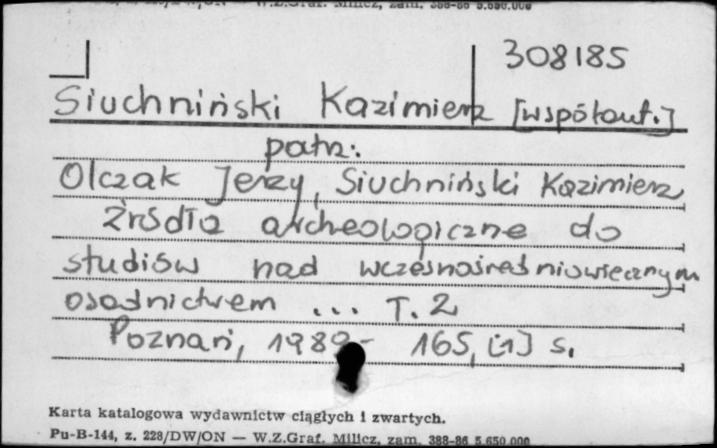 308185
Siuchniński Kazimierz [współaut.]
patrz:
Olczak Jerzy, Siuchniński Kazimierz
Źródła archeologiczne do
studiów nad wczesnośredniowiecznym
osadnictwem ... T. 2
Poznań, 1989- 165, [1] s.
Karta katalogowa wydawnictw ciągłych i zwartych.
Pu-B-144, z. 228/DW/ON — W.Z.Graf. Milicz, zam. 388-86 5.650.000